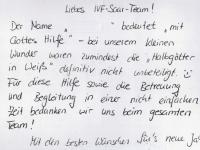 Liebes IVF-Saar-Team!
Der Name "        " bedeutet „mit
Gottes Hilfe" – bei unserem kleinen
Wunder waren zumindest die „Halbgötter
in Weiß" definitiv nicht unbeteiligt. ;)
Für diese Hilfe sowie die Betreuung
und Begleitung in einer nicht einfachen
Zeit bedanken wir uns beim gesamten
Team!
Mit den besten Wünschen für's neue Ja